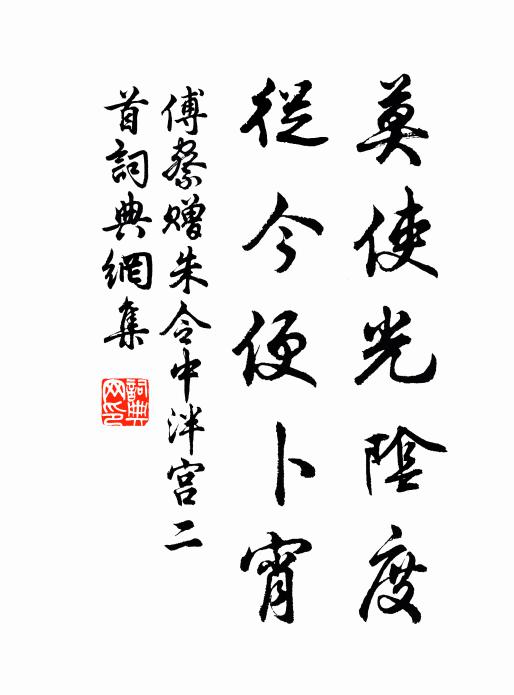 莫使光陰度
從今便卜宵
傅察贈朱令中泮宮二
首詞典網集
詞典
网印